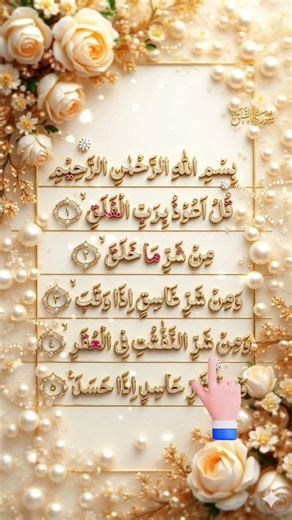 بِسْمِ اللهِ الرَّحْمٰنِ الرَّحِيْمِ
قُلْ اَعُوْذُ بِرَبِّ الْفَلَقِ ۙ ١
مِنْ شَرِّ مَا خَلَقَ ۙ ٢
وَمِنْ شَرِّ غَاسِقٍ اِذَا وَقَبَ ۙ ٣
وَمِنْ شَرِّ النَّفّٰثٰتِ فِى الْعُقَدِ ۙ ٤
حَاسِدٍ اِذَا حَسَدَ ٥